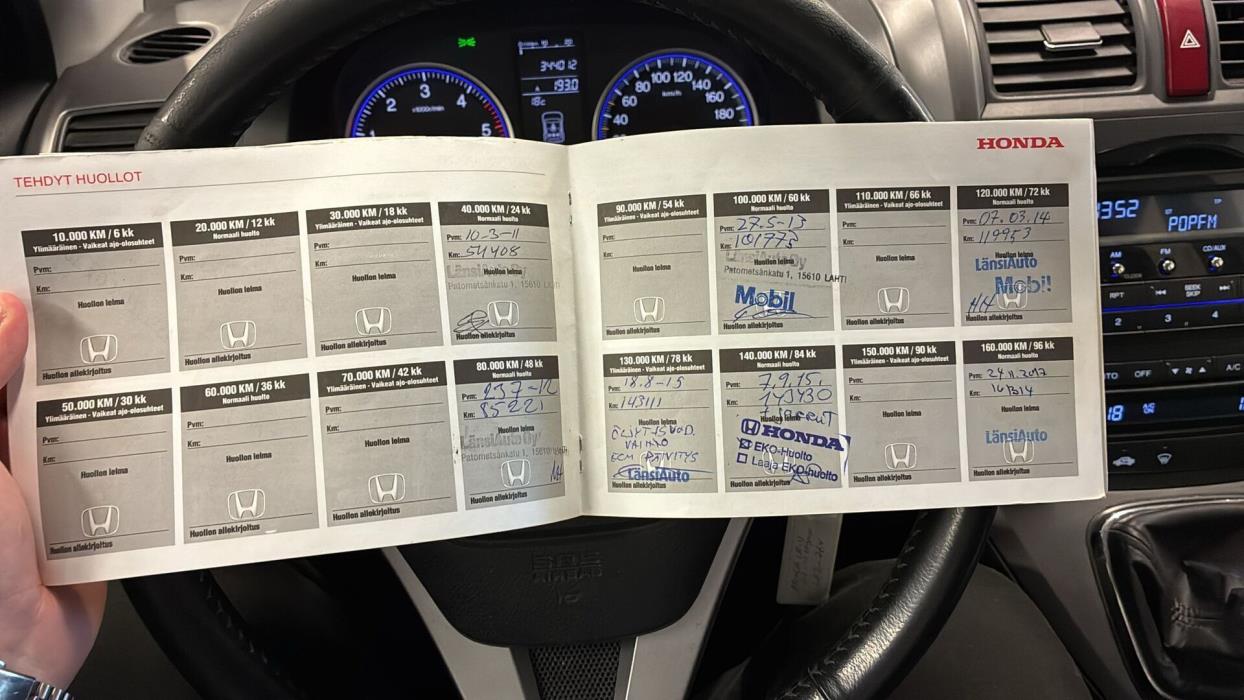 3
2
4
x1000r/min
1
5
344012
193.0
18c
100
120
80
140
60
km/h
160
40
180
TEHDYT HUOLLOT
HONDA
10.000 KM / 6 kk
Ylimääräinen - Vaikeat ajo-olosuhteet
Pvm:
Km:
Huollon leima
Huollon allekirjoitus
20.000 KM / 12 kk
Normaali huolto
Pvm:
Km:
Huollon leima
Huollon allekirjoitus
30.000 KM / 18 kk
Ylimääräinen - Vaikeat ajo-olosuhteet
Pvm:
Km:
Huollon leima
Huollon allekirjoitus
40.000 KM / 24 kk
Normaali huolto
Pvm: 10-3-11
Km: 54408
Huollon leima
LänsiAuto Oy
Patometsänkatu 1, 15610 LAHTI
Huollon allekirjoitus
50.000 KM / 30 kk
Ylimääräinen - Vaikeat ajo-olosuhteet
Pvm:
Km:
Huollon leima
Huollon allekirjoitus
60.000 KM / 36 kk
Normaali huolto
Pvm:
Km:
Huollon leima
Huollon allekirjoitus
70.000 KM / 42 kk
Ylimääräinen - Vaikeat ajo-olosuhteet
Pvm:
Km:
Huollon leima
Huollon allekirjoitus
80.000 KM / 48 kk
Normaali huolto
Pvm:
Km: 85221
Huollon leima
LänsiAuto Oy
Patometsänkatu 1, 15610
Huollon allekirjoitus
90.000 KM / 54 kk
Ylimääräinen - Vaikeat ajo-olosuhteet
Pvm:
Km:
Huollon leima
Huollon allekirjoitus
100.000 KM / 60 kk
Normaali huolto
Pvm: 27.5-13
Km: 101773
Huollon leima
LänsiAuto Oy
Patometsänkatu 1, 15610 LAHTI
Mobil
Huollon allekirjoitus
110.000 KM / 66 kk
Ylimääräinen - Vaikeat ajo-olosuhteet
Pvm:
Km:
Huollon leima
Huollon allekirjoitus
120.000 KM / 72 kk
Normaali huolto
Pvm: 07.03.14
Km: 119953
Huollon leima
LänsiAuto
Mobil
Huollon allekirjoitus
130.000 KM / 78 kk
Ylimääräinen - Vaikeat ajo-olosuhteet
Pvm: 18.8-15
Km: 143111
Huollon leima
ÖLJYT+SUOD.
VAIHTO
ECM PÄIVITYS
LänsiAuto
Huollon allekirjoitus
140.000 KM / 84 kk
Normaali huolto
Pvm: 7.9.15.
Km: 143430
Huollon leima
HONDA
EKO-Huolto
Laaja EKO-huolto
Huollon allekirjoitus
150.000 KM / 90 kk
Ylimääräinen - Vaikeat ajo-olosuhteet
Pvm:
Km:
Huollon leima
Huollon allekirjoitus
160.000 KM / 96 kk
Normaali huolto
Pvm: 24.11.2017
Km:
Huollon leima
LänsiAuto
Huollon allekirjoitus
352
POPFM
AM
FM
CD/AUX
RPT
SEEK
SKIP
2
3
4
OFF
A/C
18
SRS
AIRBAG